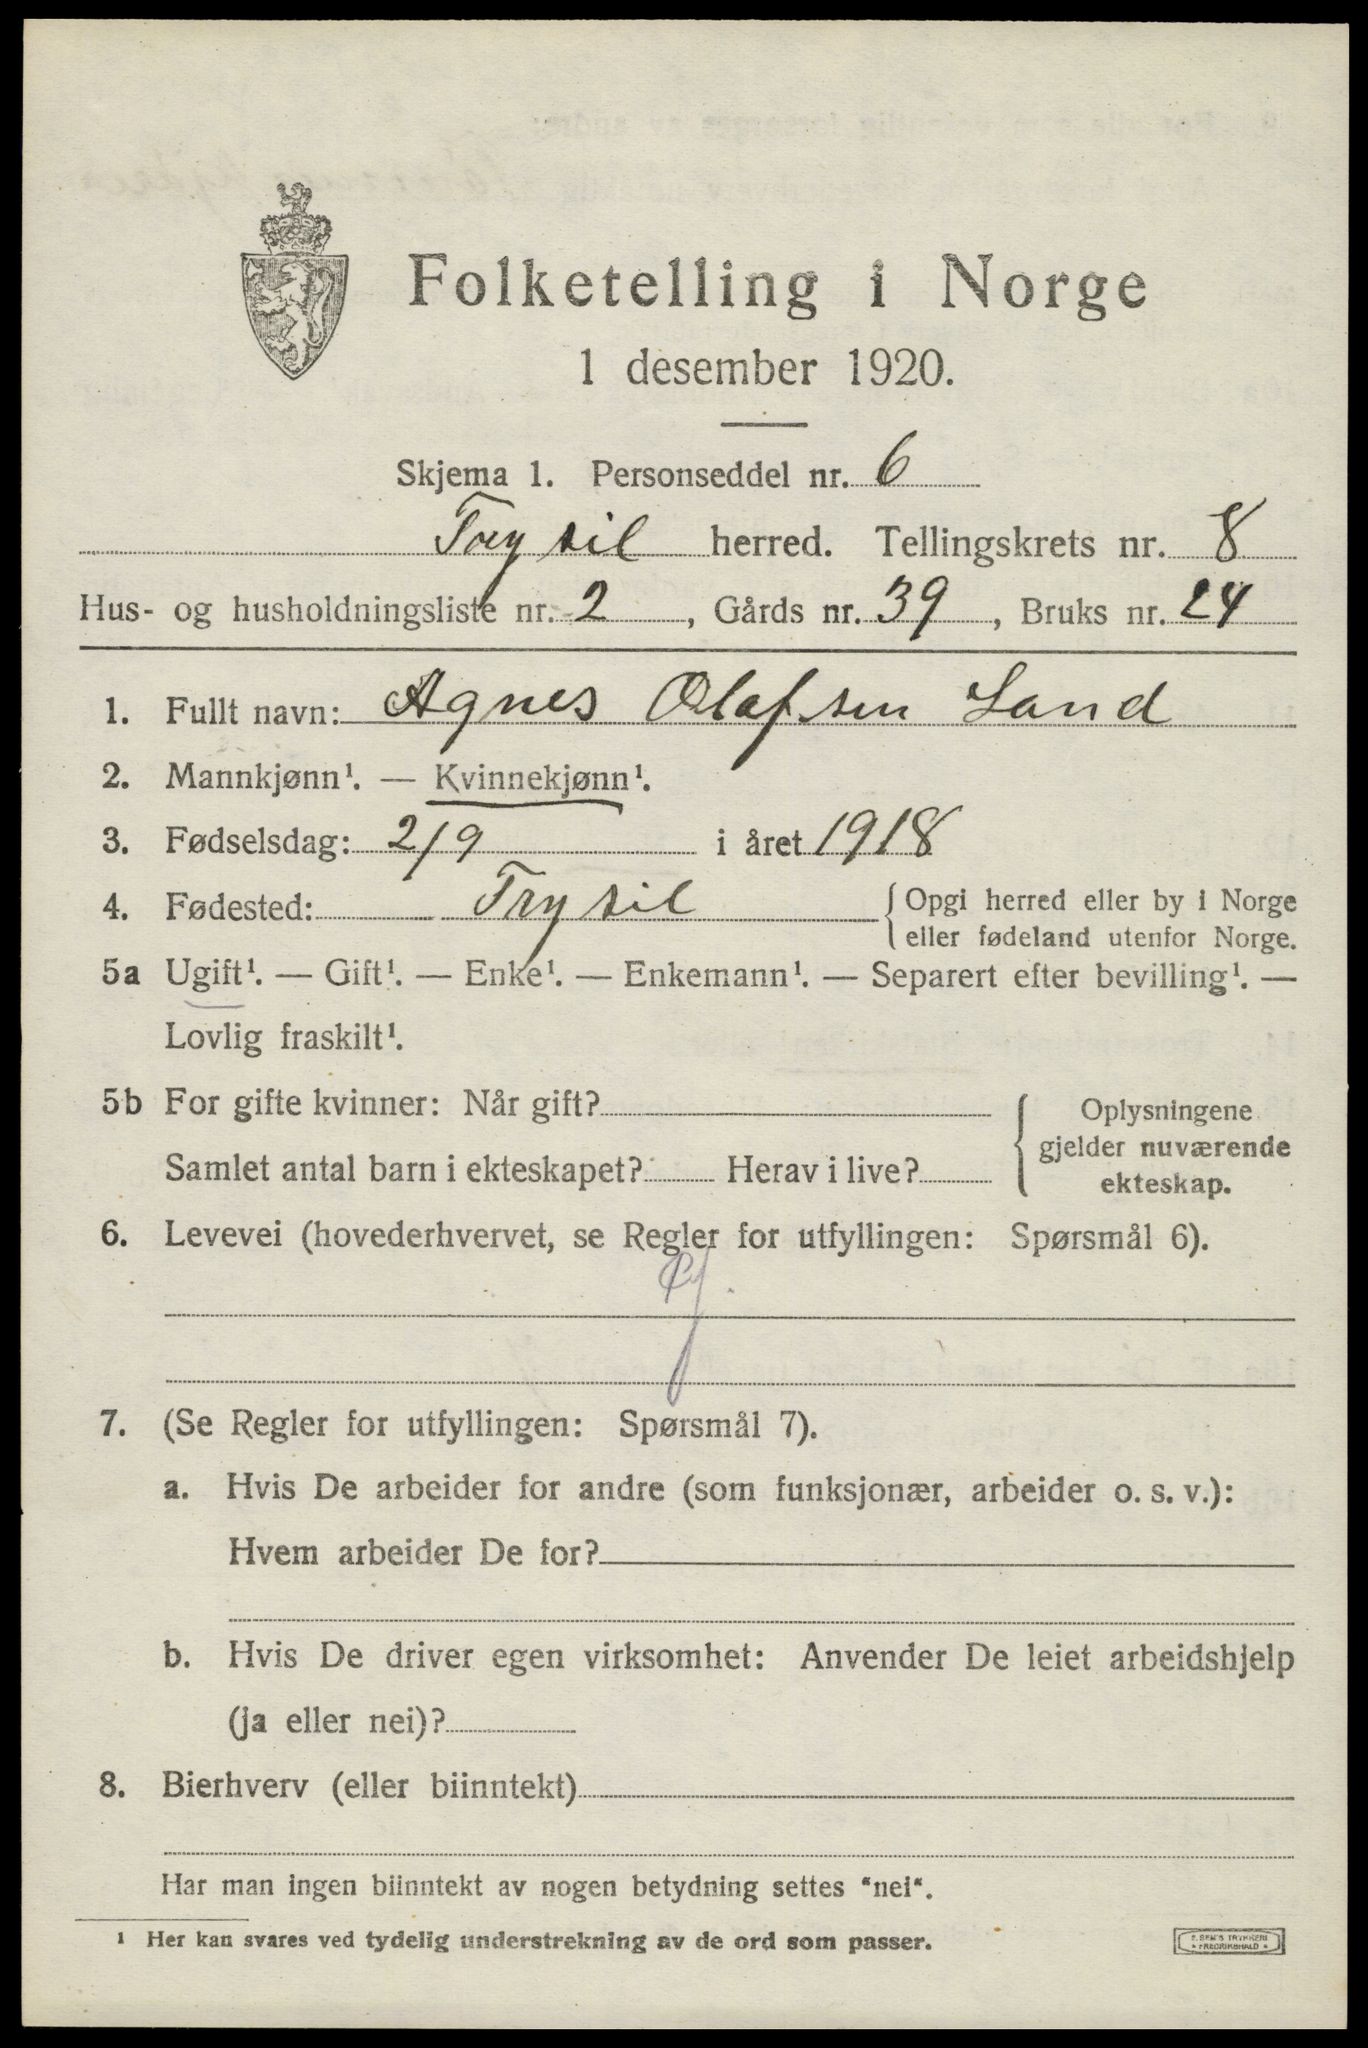 Folketelling i Norge
1 desember 1920.
Skjema 1. Personseddel nr. 6
Trysil herred. Tellingskrets nr. 8
Hus- og husholdningsliste nr. 2, Gårds nr. 39, Bruks nr. 24
1. Fullt navn: Agnes Olafsen Sand
2. Mannkjønn¹. — Kvinnekjønn¹.
3. Fødselsdag: 2/9 i året 1918
4. Fødested: Trysil {Opgi herred eller by i Norge
eller fødeland utenfor Norge.
5a Ugift¹. — Gift¹. — Enke¹. — Enkemann¹. — Separert efter bevilling¹. —
Lovlig fraskilt¹.
5b For gifte kvinner: Når gift?
Samlet antal barn i ekteskapet? Herav i live?
Oplysningene
gjelder nuværende
ekteskap.
6. Levevei (hovederhvervet, se Regler for utfyllingen: Spørsmål 6).
7. (Se Regler for utfyllingen: Spørsmål 7).
a. Hvis De arbeider for andre (som funksjonær, arbeider o. s. v.):
Hvem arbeider De for?
b. Hvis De driver egen virksomhet: Anvender De leiet arbeidshjelp
(ja eller nei)?
8. Bierhverv (eller biinntekt)
Har man ingen biinntekt av nogen betydning settes "nei".
¹ Her kan svares ved tydelig understrekning av de ord som passer.
E. SEM'S TRYKKERI
* FREDRIKSHALD *